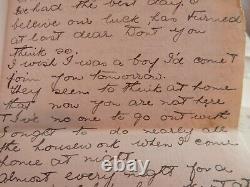 behad the best day. I
beleive our luck has turned
at last dear Dont you
think so.
I wish I was a boy I'd come &
join you tomorrow.
They seem to think at home
that now you are not here
& I've no one to go out with
I ought to do nearly all
the housework when I come
home at night.
Almost every night for a